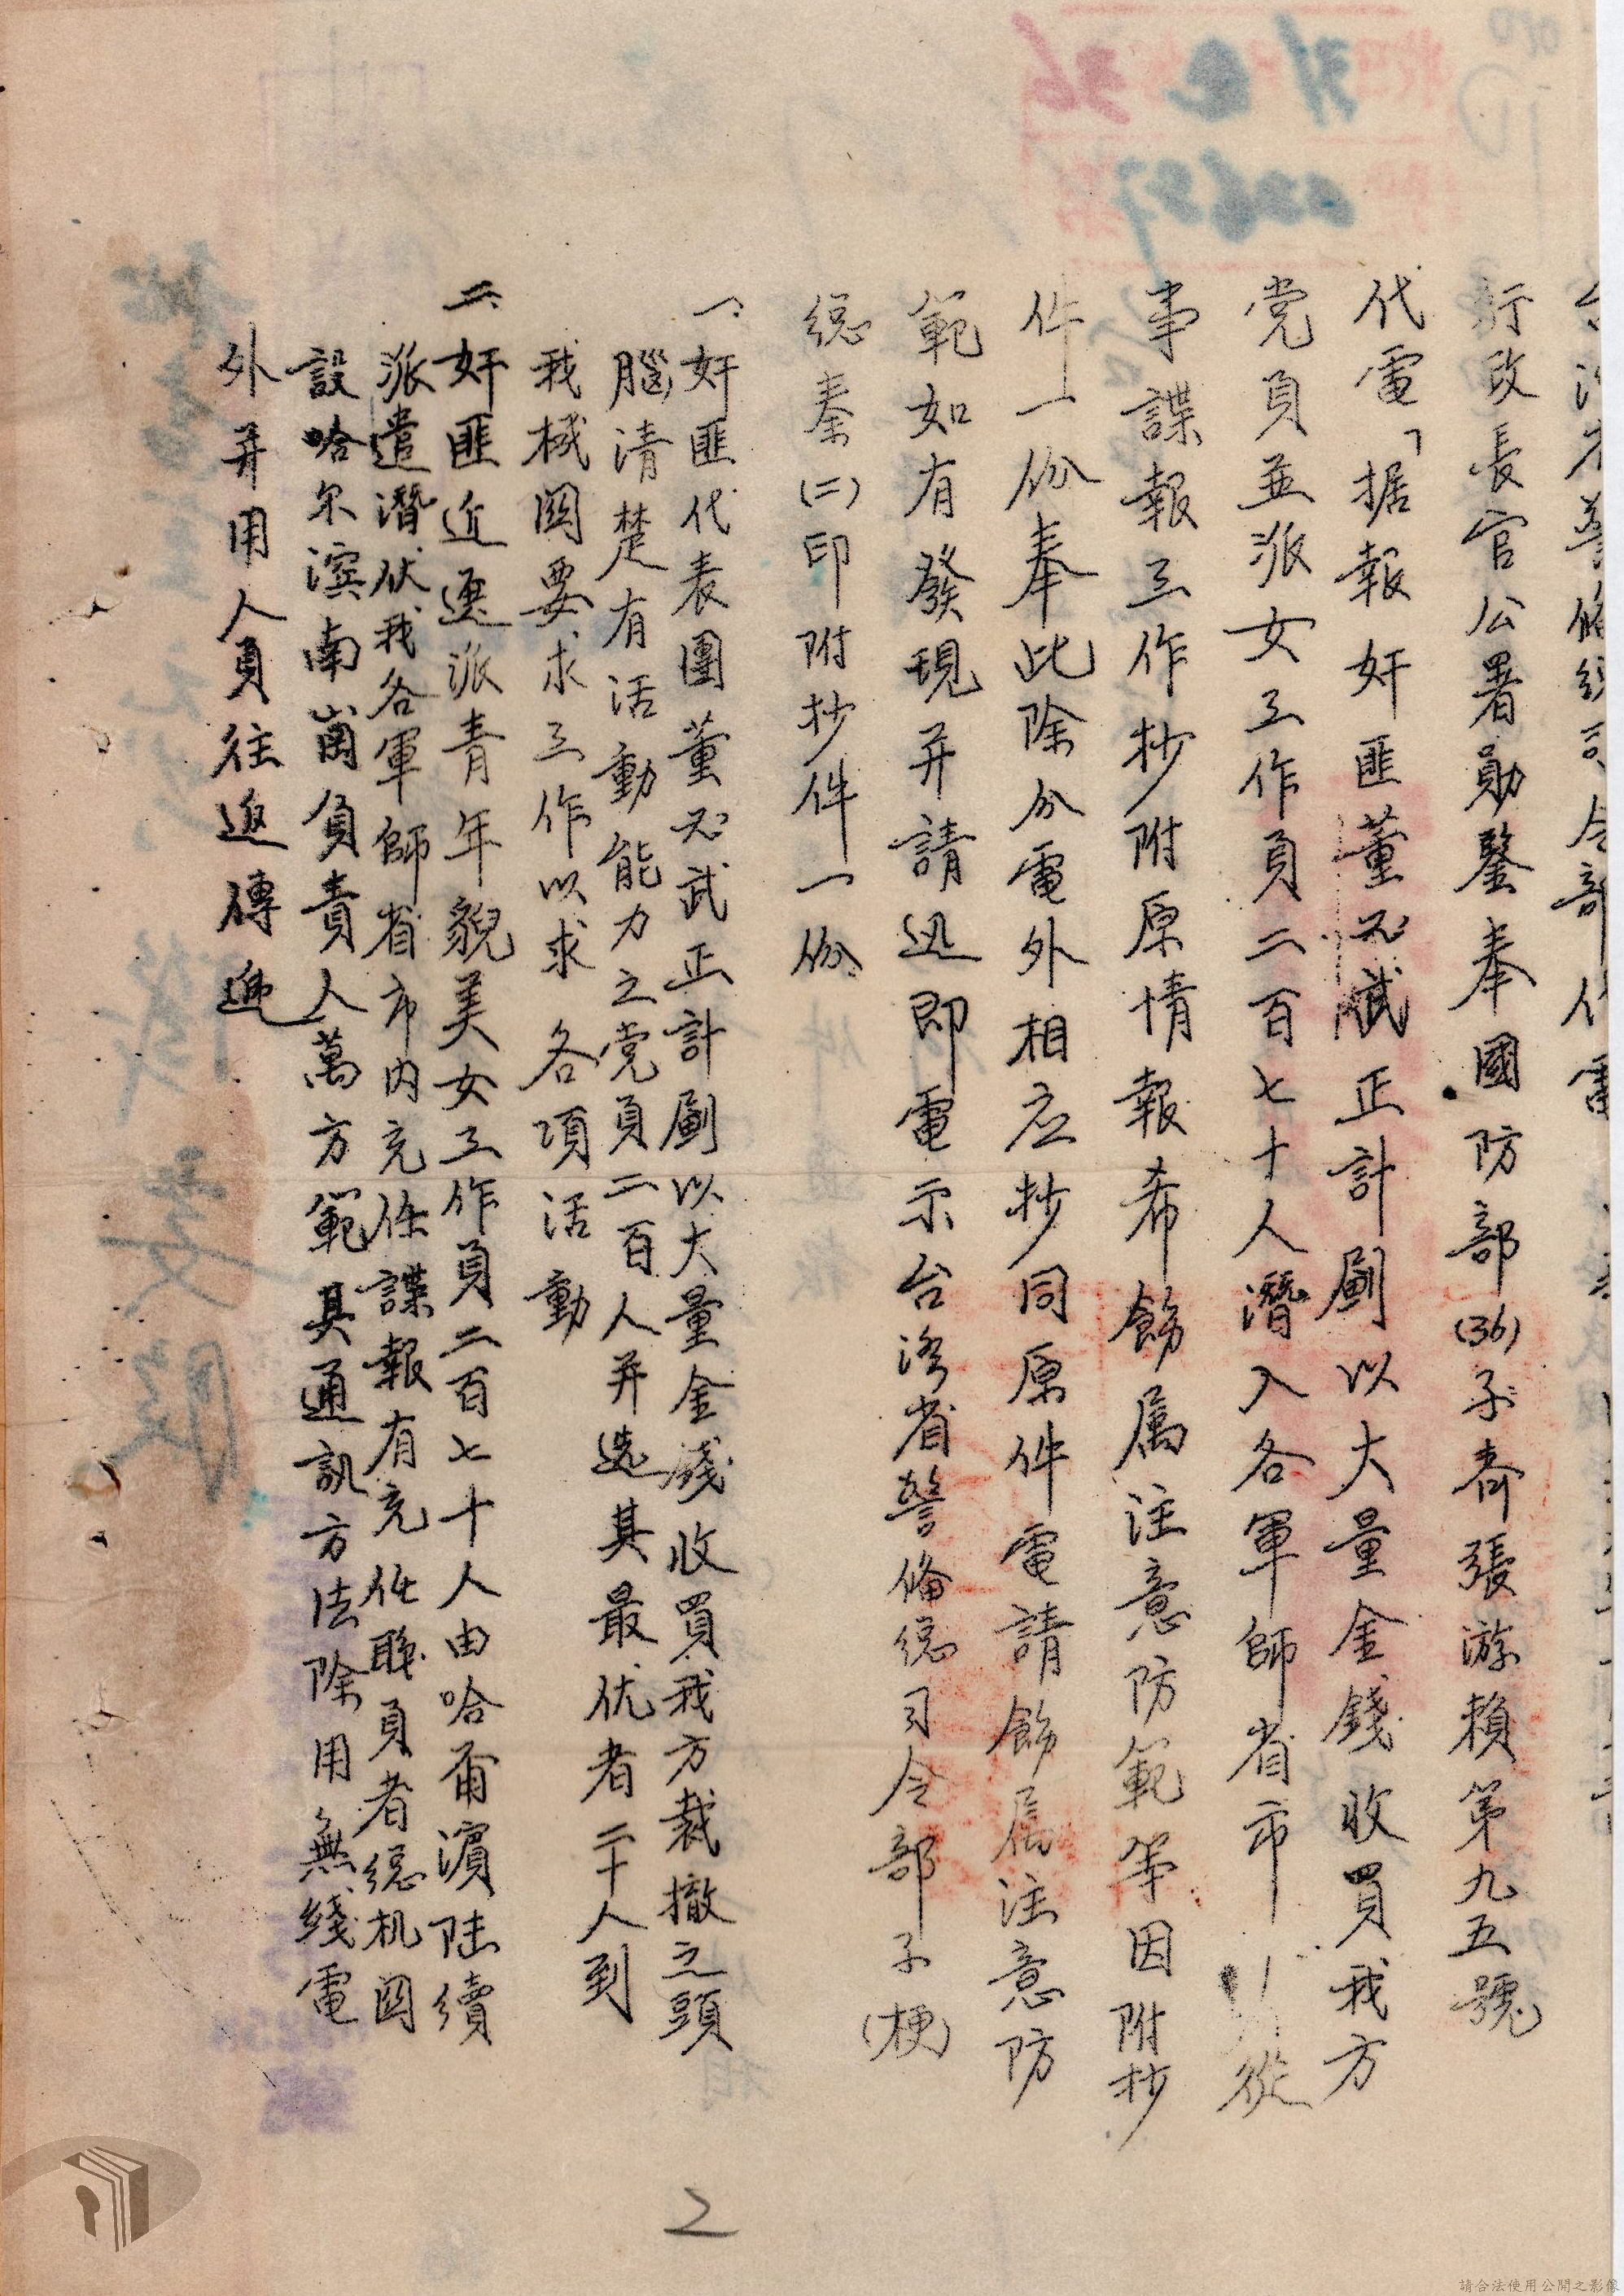 台湾省警俻総司令部代電
行政長官公署勛鑒奉國防部(36)子斉張游賴第九五號
代電「据報奸匪董必武正計劃以大量金錢收買我方
党員並派女工作員二百七十人潛入各軍師省市從
事諜報工作抄附原情報希飭属注意防範等因附抄
件一份奉此除分電外相应抄同原件電請飭属注意防
範如有發現并請迅即電示台湾省警俻総司令部子(梗)
総秦(二)印附抄件一份
一、奸匪代表團董必武正計劃以大量金錢收買我方裁撤之頭
腦清楚有活動能力之党員二百人并选其最优者二十人到
我機関要求工作以求各項活動
二、奸匪近選派青年貌美女工作員二百七十人由哈爾濱陆續
派遣潛伏我各軍師省市内充任諜報有充任職員者総机関
設哈尔濱南崗負責人萬方範其通訊方法除用無綫電
外并用人員往返傳遞
2
請合法使用公開之影像